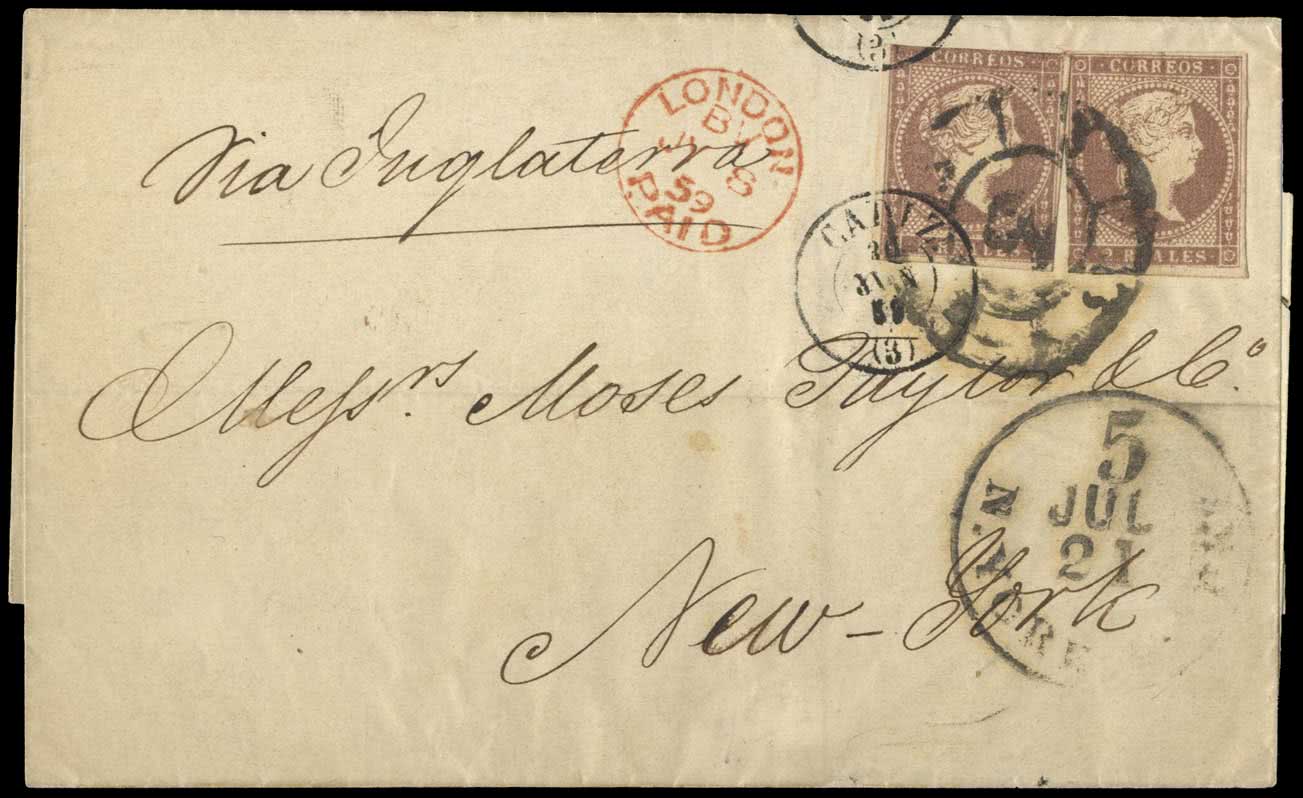 (3)
CORREOS
CORREOS
LONDON
BY
8
59
PAID
Via Inglaterra
CADIZ
30
JUN
59
(3)
REALES
2 REALES
Messrs. Moses Taylor & Co.
5
JUL
21
N.Y.
New-York